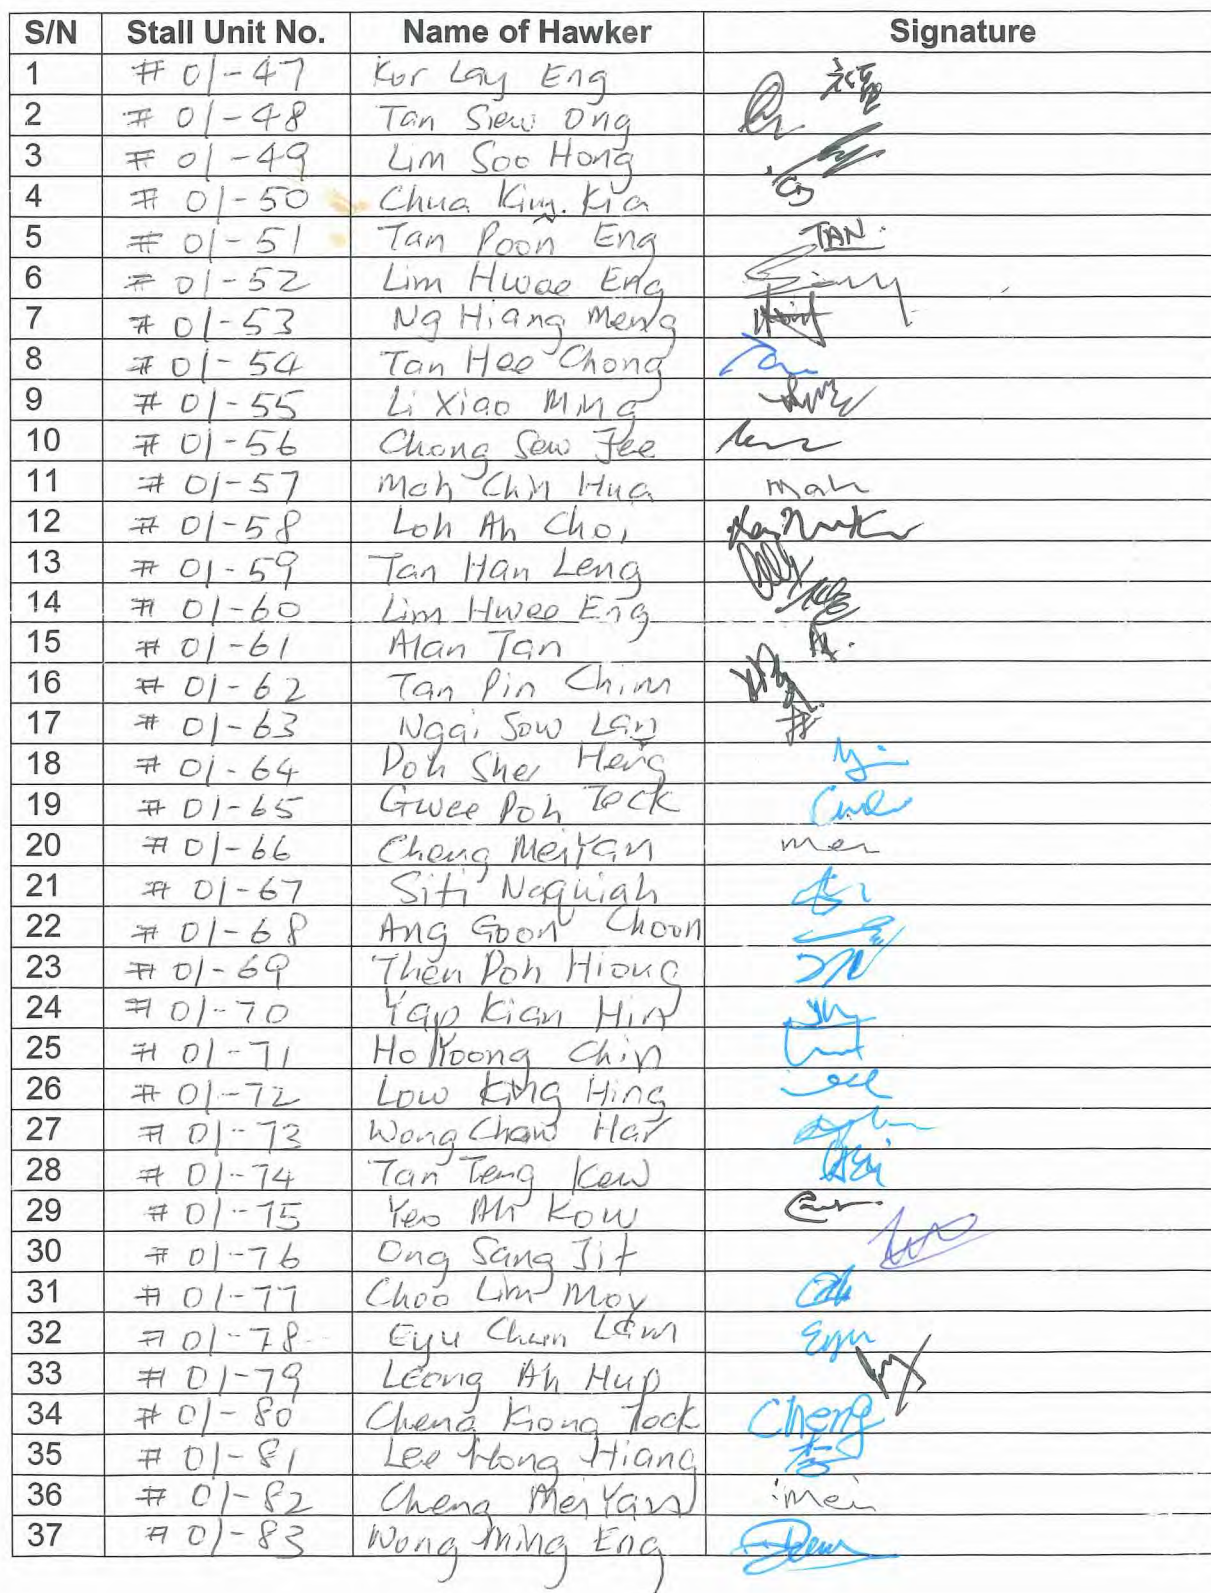 S/N Stall Unit No. Name of Hawker Signature
1 # 01-47 Kor Lay Eng
2 # 01-48 Tan Siew Ong
3 # 01-49 Lim Soo Hong
4 # 01-50 Chua Kim. Kia
5 # 01-51 Tan Poon Eng TAN.
6 # 01-52 Lim Hwee Eng
7 # 01-53 Ng Hiang Meng
8 # 01-54 Tan Hee Chong Tan
9 # 01-55 Li Xiao Ming
10 # 01-56 Chong Sew Fee
11 # 01-57 Moh Chin Hua Mah
12 # 01-58 Loh Ah Choi
13 # 01-59 Tan Han Leng
14 # 01-60 Lim Hwee Eng
15 # 01-61 Alan Tan
16 # 01-62 Tan Pin Chim
17 # 01-63 Ngai Sow Lan
18 # 01-64 Poh Sher Heng
19 # 01-65 Gwee Poh Teck
20 # 01-66 Cheng MeiYan mei
21 # 01-67 Siti Naquiah
22 # 01-68 Ang Goon Choon
23 # 01-69 Then Poh Hiong
24 # 01-70 Yap Kian Hin
25 # 01-71 Ho Yoong Chin
26 # 01-72 Low King Hing
27 # 01-73 Wong Chaw Har
28 # 01-74 Tan Teng Kew
29 # 01-75 Yeo Ah Kow
30 # 01-76 Ong Sang Jit
31 # 01-77 Choo Lim Moy
32 # 01-78 Eyu Chun Lam Eyu
33 # 01-79 Leong Ah Hup
34 # 01-80 Cheng Kiong Tock Cheng
35 # 01-81 Lee Hong Hiang 李
36 # 01-82 Cheng Mei Yan mei
37 # 01-83 Wong Ming Eng